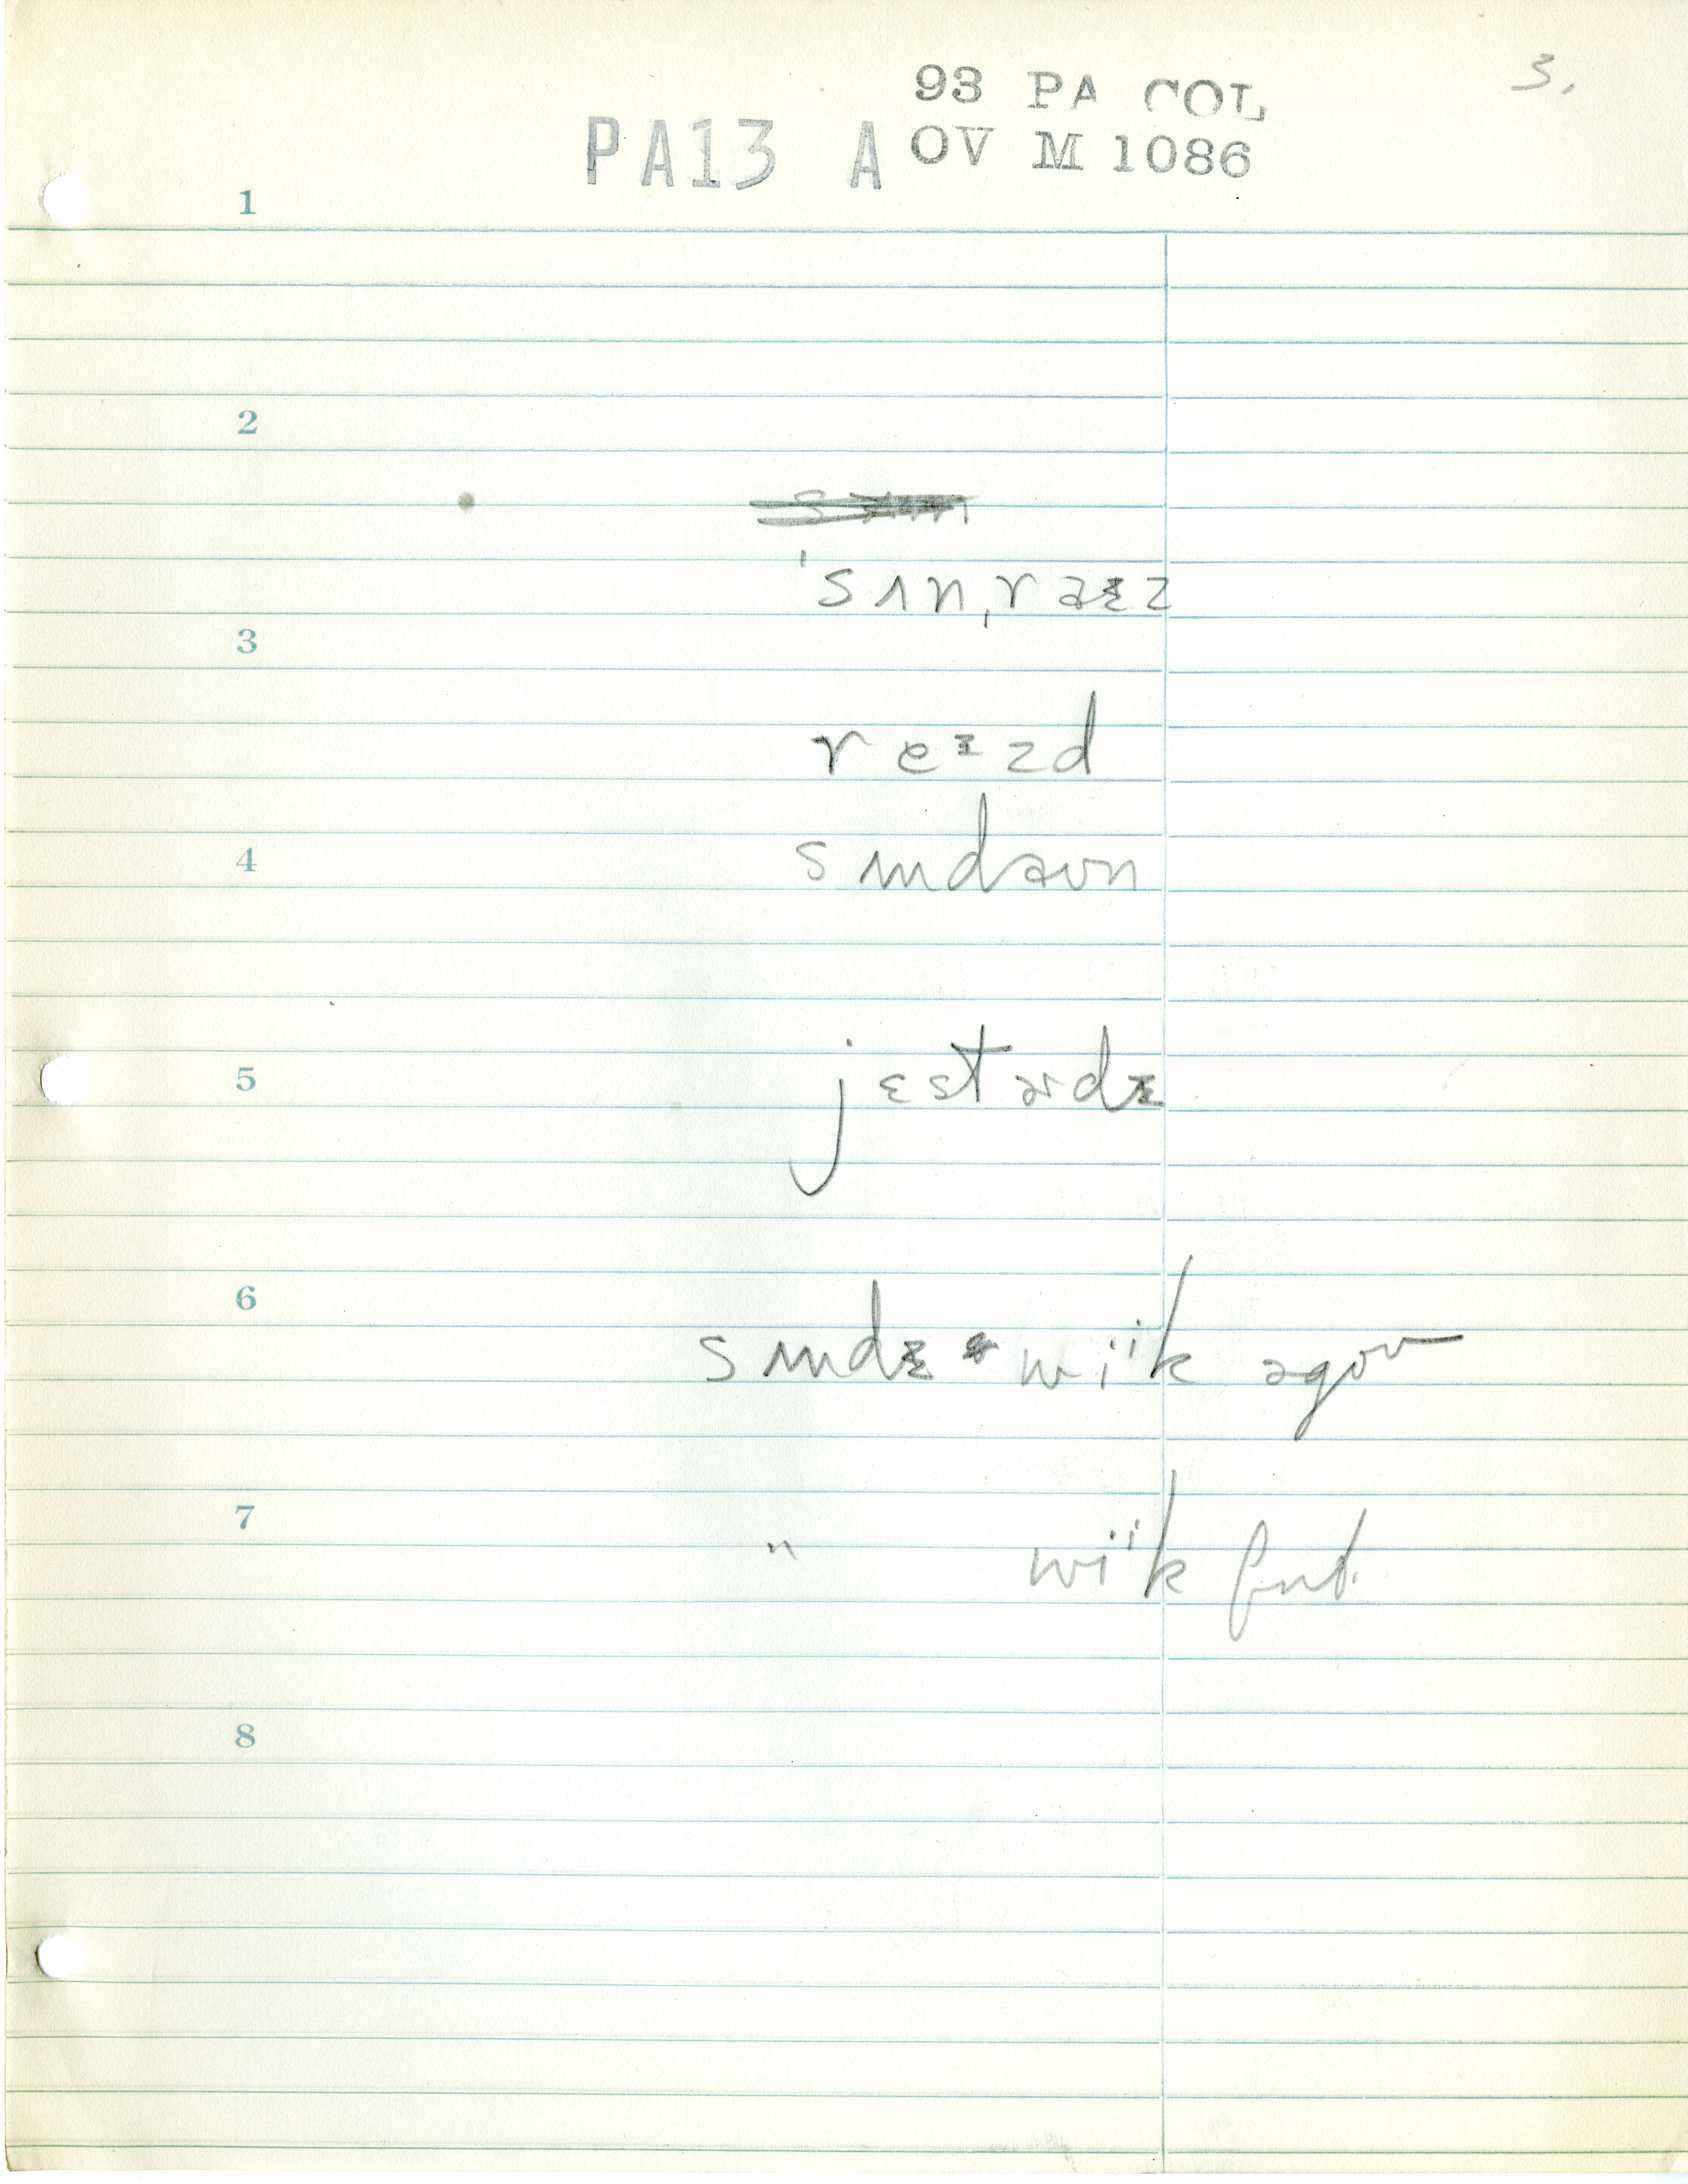 3.
93 PA COL
PA13 A OV M 1086
1
2
ˈsʌnˌraɪz
3
reɪzd
4
sʌndaʊn
5
jɛstɚdɪ
6
sʌndɪ wiik əgoʊ
7
" wiik
8